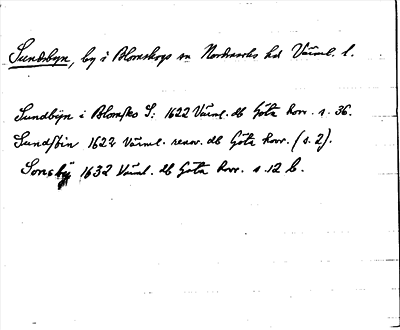 Sundsbyn, by i Blomskogs sn Nordmarks hd Värml. l.
Sundbÿn i Blomsko S: 1622 Värml. db Göta hovr. s. 36.
Sundsbin 1622 Värml. renov. db Göta hovr. (s. 2).
Sonsbÿ 1632 Värml. db Göta hovr. s 12 b.